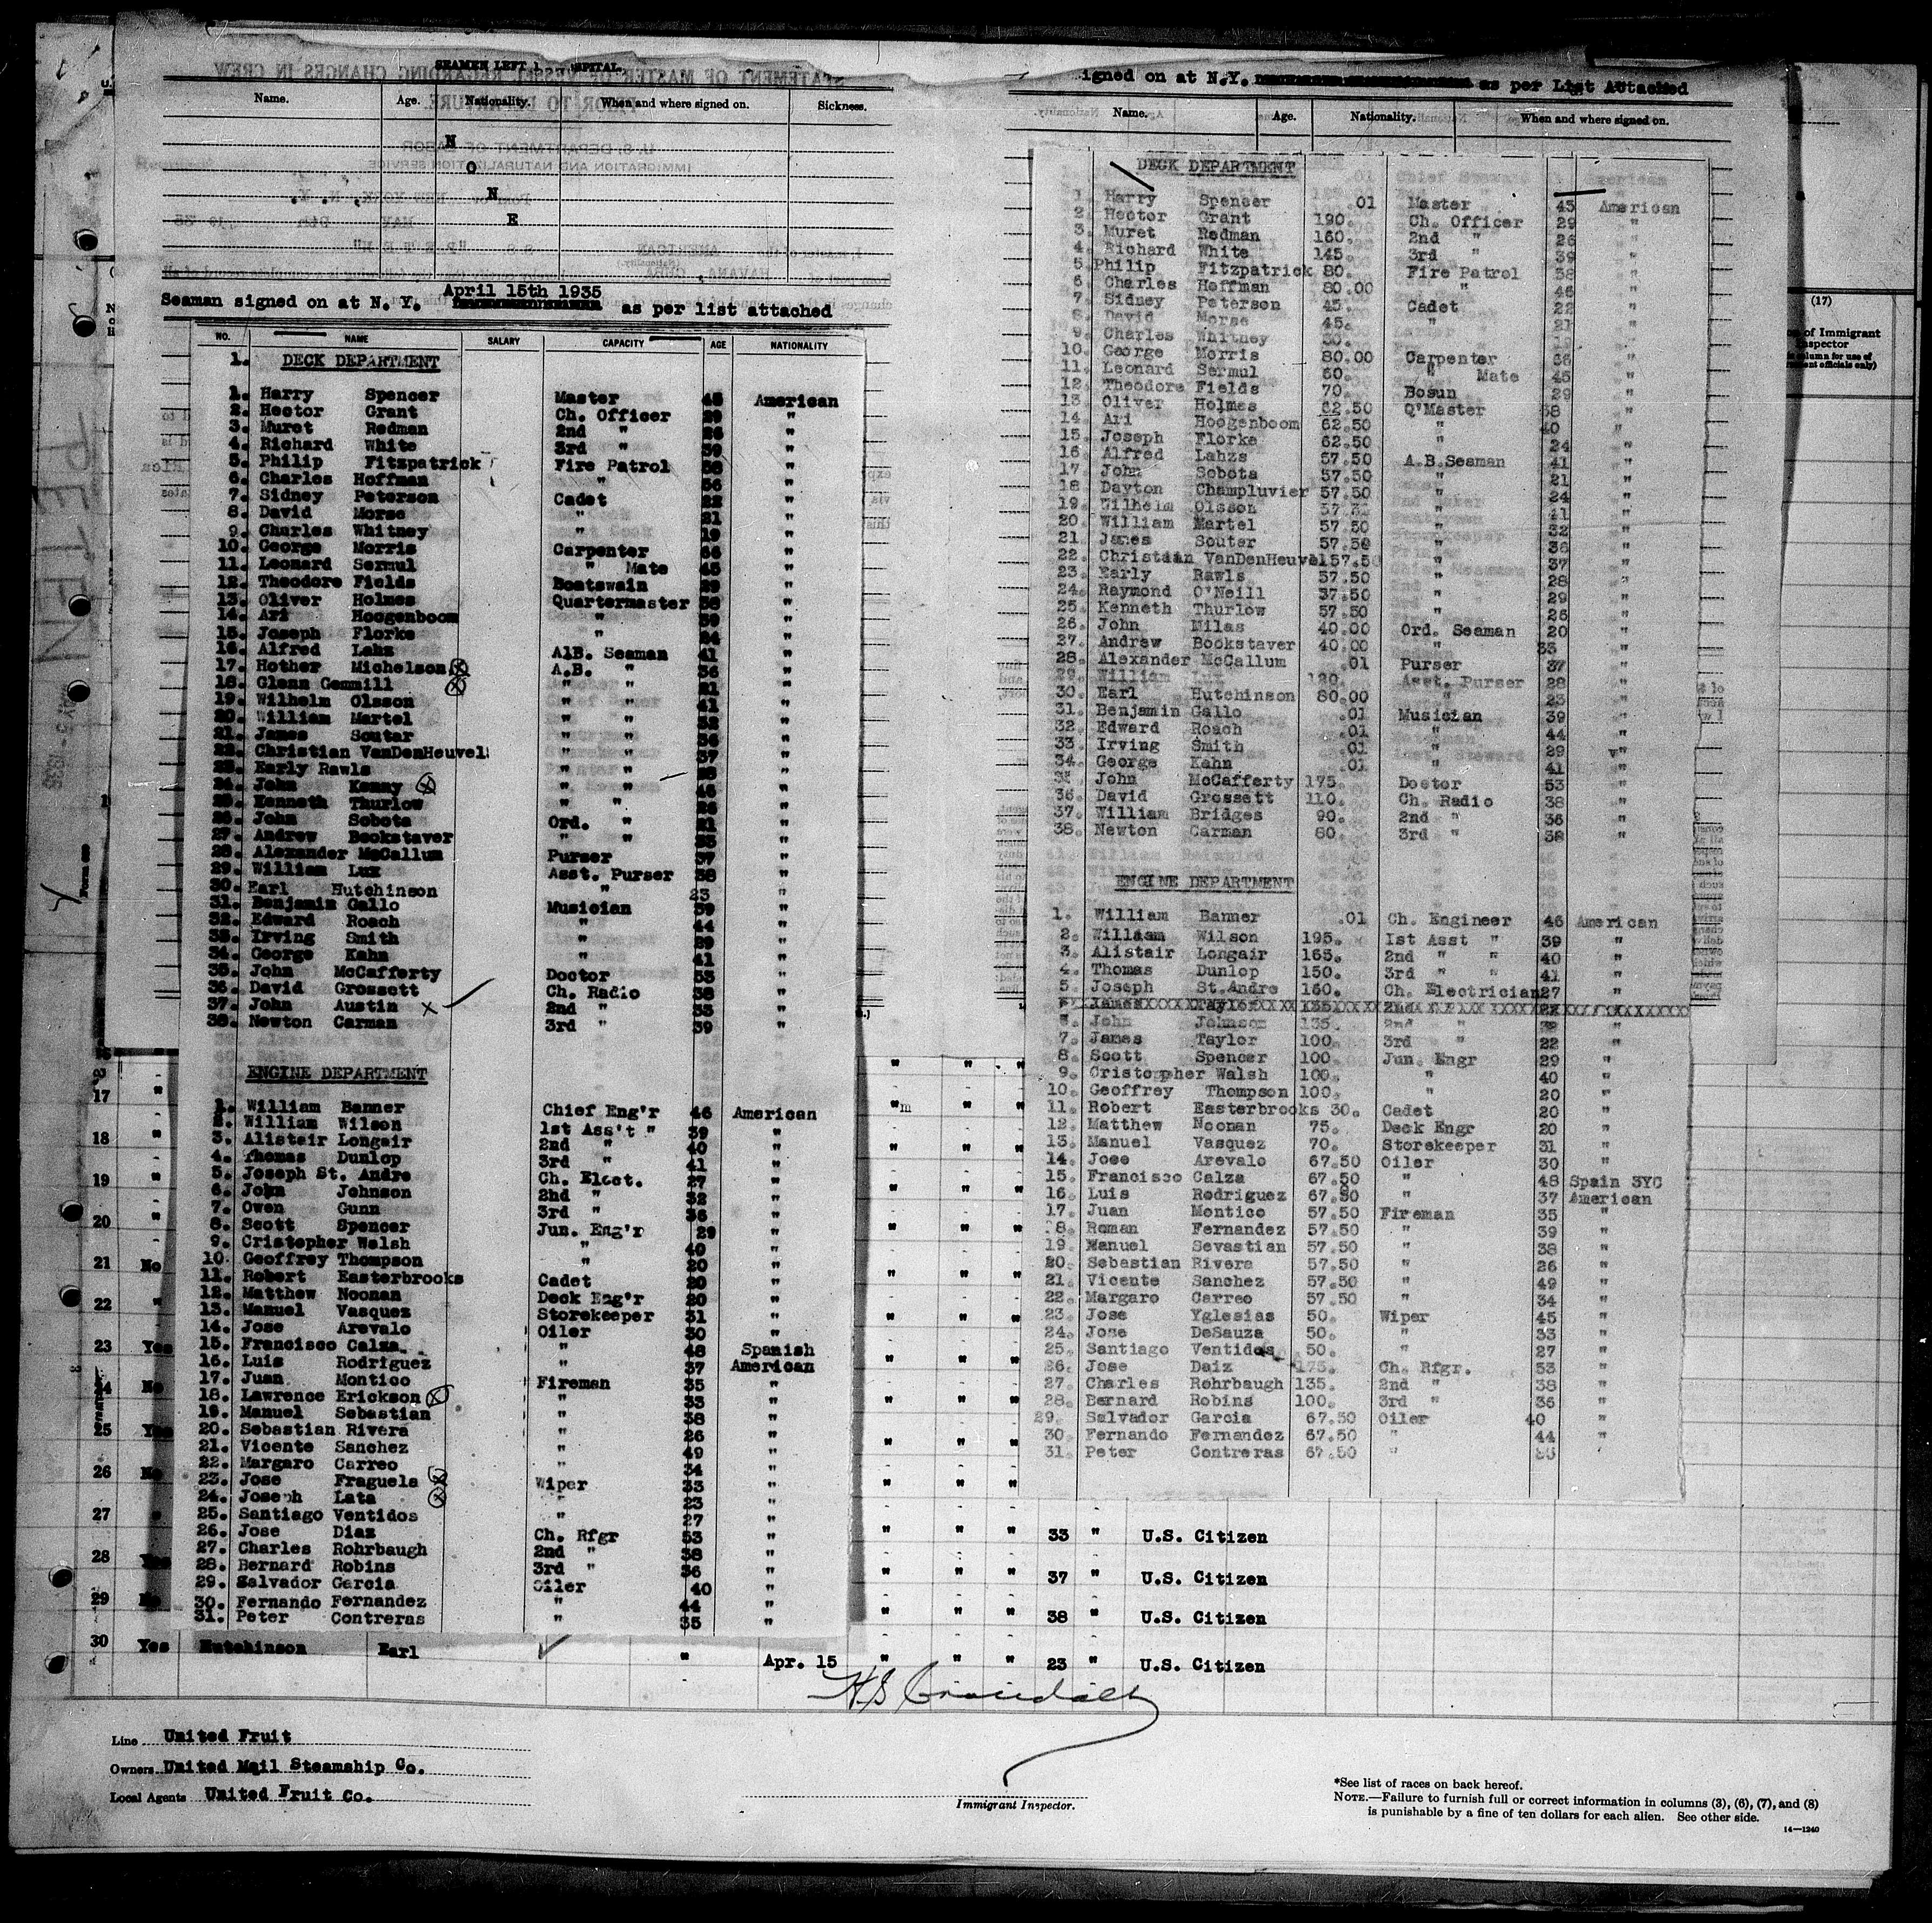 SEAMEN LEFT
Name. Age. Nationality. When and where signed on. Sickness.
N
O
N
E
April 15th 1935
Seaman signed on at N. Y. as per list attached
NO. NAME SALARY CAPACITY AGE NATIONALITY
1. DECK DEPARTMENT
1. Harry Spencer Master 45 American
2. Hector Grant Ch. Officer 29 "
3. Muret Redman 2nd " 26 "
4. Richard White 3rd " 39 "
5. Philip Fitzpatrick Fire Patrol 38 "
6. Charles Hoffman " 56 "
7. Sidney Peterson Cadet 22 "
8. David Morse " 21 "
9. Charles Whitney " 19 "
10. George Morris Carpenter 66 "
11. Leonard Sermul " Mate 45 "
12. Theodore Fields Boatswain 29 "
13. Oliver Holmes Quartermaster 38 "
14. Ari Hoogenboom " 39 "
15. Joseph Florke " 24 "
16. Alfred Lahz AlB. Seaman 41 "
17. Hother Michelson A.B. " 36 "
18. Glenn Gemmill " " 21 "
19. Wilhelm Olsson " " 41 "
20. William Martel " " 32 "
21. James Soutar " " 36 "
22. Christian VanDenHeuvel " " 37 "
23. Early Rawls " " 28 "
24. John Kenny " " 46 "
25. Kenneth Thurlow " " 26 "
26. John Sobota Ord. " 21 "
27. Andrew Bookstaver " " 33 "
28. Alexander McCallum Purser 37 "
29. William Lux Asst. Purser 38 "
30. Earl Hutchinson " 23 "
31. Benjamin Gallo Musician 39 "
32. Edward Roach " 44 "
33. Irving Smith " 29 "
34. George Kahn " 41 "
35. John McCafferty Doctor 53 "
36. David Grossett Ch. Radio 38 "
37. John Austin X 2nd " 33 "
38. Newton Carman 3rd " 39 "
ENGINE DEPARTMENT
1. William Banner Chief Eng'r 46 American
2. William Wilson 1st Ass't " 39 "
3. Alistair Longair 2nd " 40 "
4. Thomas Dunlop 3rd " 41 "
5. Joseph St. Andre Ch. Elect. 27 "
6. John Johnson 2nd " 32 "
7. Owen Gunn 3rd " 36 "
8. Scott Spencer Jun. Eng'r 29 "
9. Cristopher Walsh " 40 "
10. Geoffrey Thompson " 20 "
11. Robert Easterbrooks Cadet 20 "
12. Matthew Noonan Deck Eng'r 20 "
13. Manuel Vasquez Storekeeper 31 "
14. Jose Arevalo Oiler 30 "
15. Francisco Calza " 48 Spanish
16. Luis Rodriguez " 37 American
17. Juan Montico Fireman 35 "
18. Lawrence Erickson " 33 "
19. Manuel Sebastian " 38 "
20. Sebastian Rivera " 26 "
21. Vicente Sanchez " 49 "
22. Margaro Carreo " 34 "
23. Jose Fraguela Wiper 33 "
24. Joseph Lata " 23 "
25. Santiago Ventidos " 27 "
26. Jose Diaz Ch. Rfgr 53 "
27. Charles Rohrbaugh 2nd " 38 "
28. Bernard Robins 3rd " 36 "
29. Salvador Garcia Oiler 40 "
30. Fernando Fernandez " 44 "
31. Peter Contreras " 35 "
igned on at N.Y. as per List Attached
Name. Age. Nationality. When and where signed on.
DECK DEPARTMENT
1. Harry Spencer .01 Master 45 American
2. Hector Grant 190. Ch. Officer 29 "
3. Muret Redman 160. 2nd " 26 "
4. Richard White 145. 3rd " 39 "
5. Philip Fitzpatrick 80. Fire Patrol 38 "
6. Charles Hoffman 80.00 " 46 "
7. Sidney Peterson 45. Cadet 22 "
8. David Morse 45. " 21 "
9. Charles Whitney 30. 19 "
10. George Morris 80.00 Carpenter 66 "
11. Leonard Sermul 60. " Mate 45 "
12. Theodore Fields 70. Bosun 29 "
13 Oliver Holmes 62.50 Q'Master 38 "
14 Ari Hoogenboom 62.50 " 40 "
15. Joseph Florke 62.50 " 24 "
16 Alfred Lahzs 57.50 A.B.Seaman 41 "
17 John Sobota 57.50 " 21 "
18 Dayton Champluvier 57.50 " 24 "
19. Wilhelm Olsson " 41 "
20. William Martel 57.50 " 32 "
21 James Souter 57.50 " 36 "
22. Christian VanDenHeuvel 57.50 " 37 "
23. Early Rawls 57.50 " 28 "
24. Raymond O'Neill 37.50 " 29 "
25. Kenneth Thurlow 57.50 " 26 "
26. John Milas 40.00 Ord. Seaman 20 "
27. Andrew Bookstaver 40.00 " 33 "
28. Alexander McCallum .01 Purser 37 "
29. William Lux 120. Asst. Purser 28 "
30. Earl Hutchinson 80.00 " 23 "
31. Benjamin Gallo .01 Musician 39 "
32 Edward Roach .01 " 44 "
33. Irving Smith .01 " 29 "
34. George Kahn .01 " 41 "
35 John McCafferty 175. Doctor 53 "
36. David Grossett 110. Ch. Radio 38 "
37. William Bridges 90. 2nd " 36 "
38. Newton Carman 80. 3rd " 38 "
ENGINE DEPARTMENT
1. William Banner .01 Ch. Engineer 46 American
2. William Wilson 195. 1st Asst " 39 "
3. Alistair Longair 165. 2nd " " 40 "
4. Thomas Dunlop 150. 3rd " " 41 "
5. Joseph St.Andre 160. Ch. Electrician 27 "
6. John Johnson 135. 2nd " 32 "
7. James Taylor 100. 3rd " 22 "
8. Scott Spencer 100. Jun. Engr 29 "
9. Cristopher Walsh 100. " 40 "
10. Geoffrey Thompson 100. " 20 "
11. Robert Easterbrooks 30. Cadet 20 "
12. Matthew Noonan 75. Deck Engr 20 "
13. Manuel Vasquez 70. Storekeeper 31 "
14. Jose Arevalo 67.50 Oiler 30 "
15. Francisco Calza 67.50 " 48 Spain SYC
16. Luis Rodriguez 67.50 " 37 American
17. Juan Montico 57.50 Fireman 35 "
18. Roman Fernandez 57.50 " 39 "
19. Manuel Sevastian 57.50 " 38 "
20. Sebastian Rivera 57.50 " 26 "
21. Vicente Sanchez 57.50 " 49 "
22. Margaro Carreo 57.50 " 34 "
23. Jose Yglesias 50. Wiper 45 "
24. Jose DeSauza 50. " 33 "
25. Santiago Ventidos 50. " 27 "
26. Jose Daiz 175. Ch. Rfgr. 53 "
27. Charles Rohrbaugh 135. 2nd " 38 "
28. Bernard Robins 100. 3rd " 36 "
29. Salvador Garcia 67.50 Oiler 40 "
30. Fernando Fernandez 67.50 " 44 "
31. Peter Contreras 67.50 "
(17)
of Immigrant
Inspector
PETEN
17 "
18 "
19 "
20 "
21 No
22 "
23 Yes
24 No
25 Yes
26 No
27 "
28 Yes
29 No
33 " U.S. Citizen
37 " U.S. Citizen
38 " U.S. Citizen
30 Yes Hutchinson Earl " Apr. 15 " " " 23 " U.S. Citizen
Line United Fruit
Owners United Mail Steamship Co.
Local Agents United Fruit Co.
Immigrant Inspector.
*See list of races on back hereof.
NOTE.—Failure to furnish full or correct information in columns (3), (6), (7), and (8)
is punishable by a fine of ten dollars for each alien. See other side.
14—1240